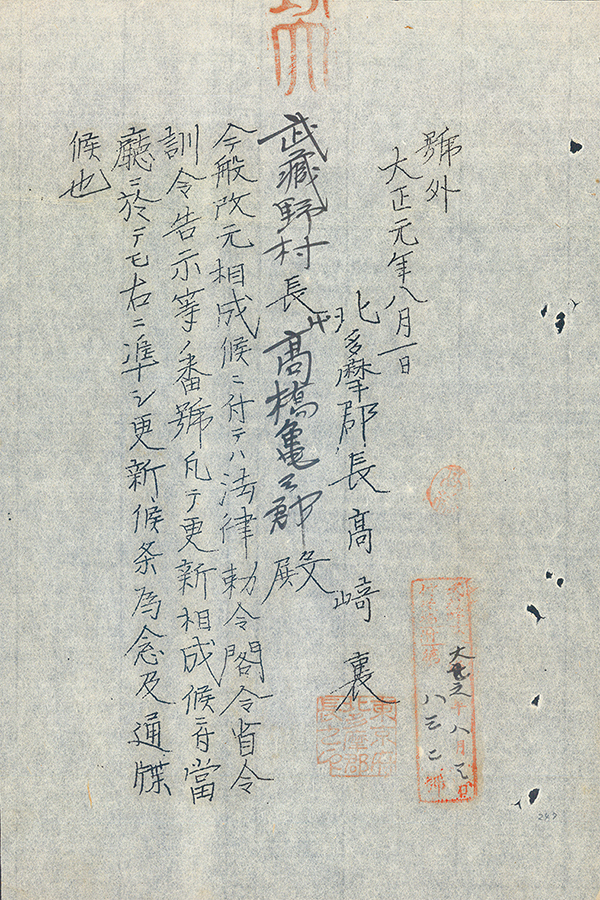 號外
大正元年八月一日
北多摩郡長高﨑裏
武藏野村長
高橋亀之郎殿
今般改元相成候ニ付テハ法律勅令閣令省令
訓令告示等ノ番號凡テ更新相成候ニ付當
廳ニ於テモ右ニ準シ更新候条為念及通牒
候也
東京府北多摩郡長之印
八三二號
247